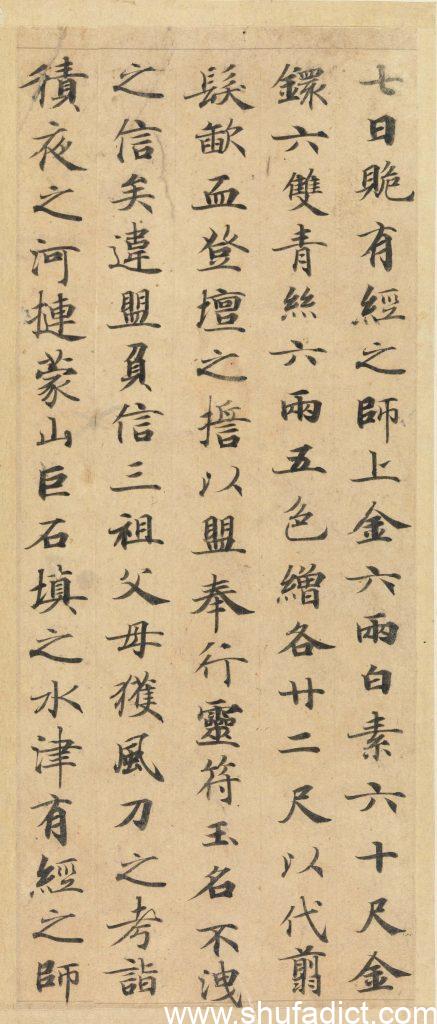 七日賝有經之師上金六兩白素六十尺金
鐶六雙青絲六兩五色繒各廿二尺以代翦
髮歃血登壇之誓以盟奉行靈符玉名不洩
之信矣違盟負信三祖父母獲風刀之考詣
積夜之河摙蒙山巨石填之水津有經之師
www.shufadict.com